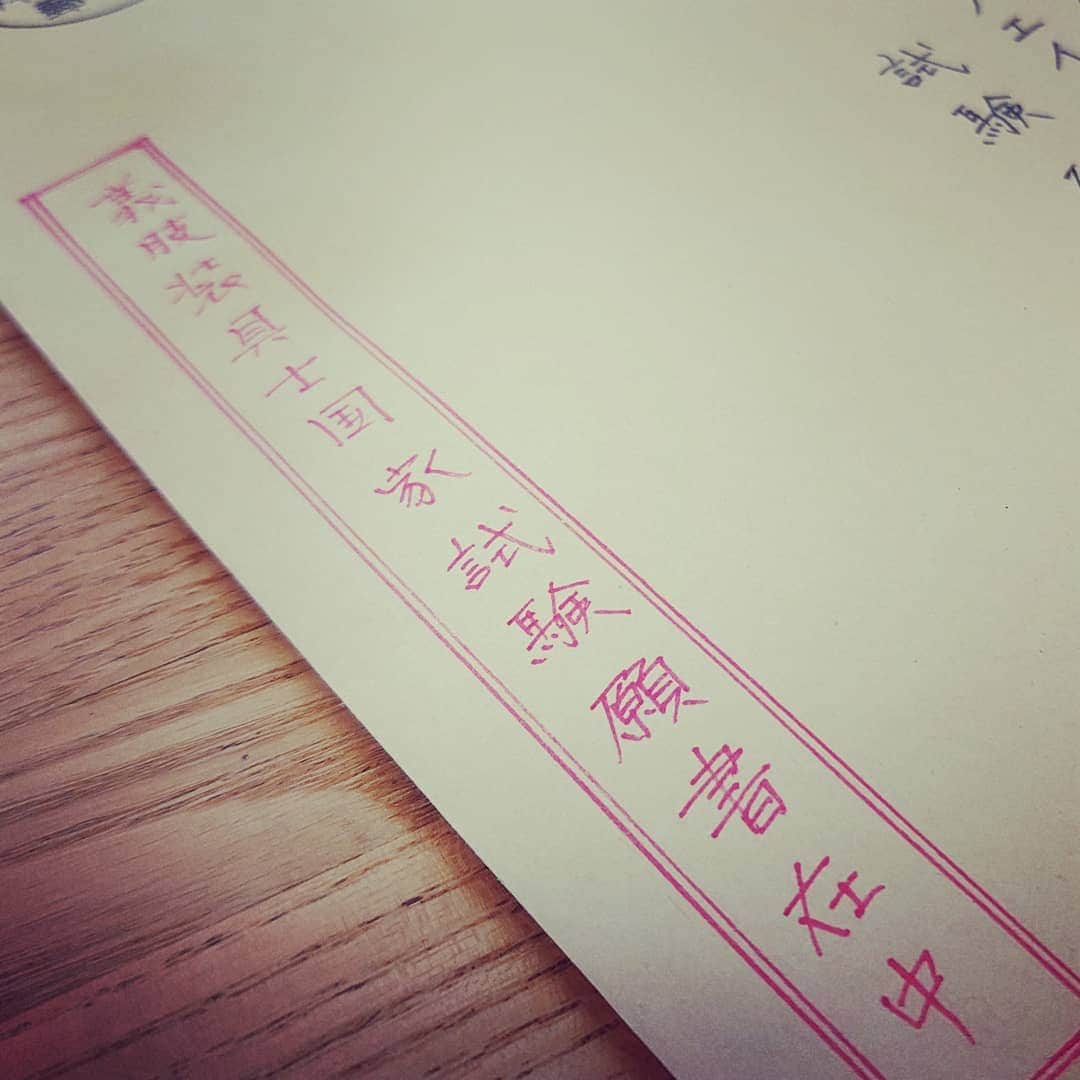 試験
義肢装具士国家試験願書在中